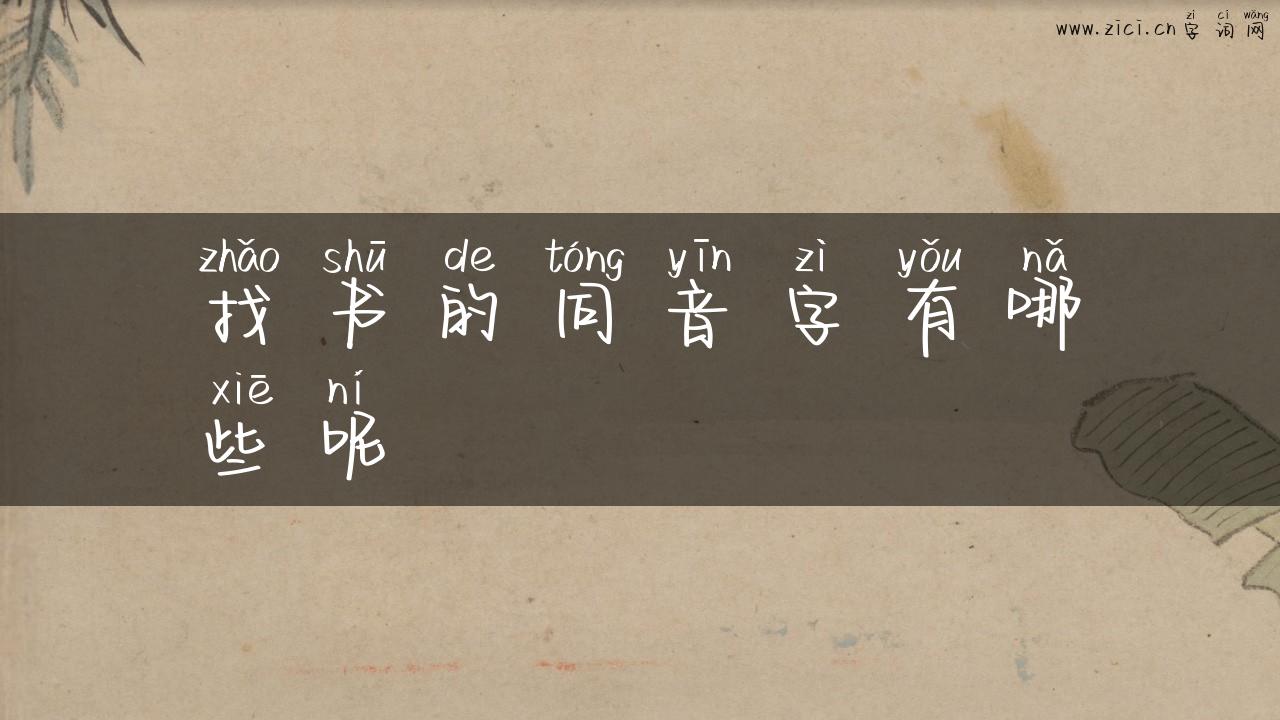 zì cí wǎng
www.zici.cn字词网
zhǎo shū de tóng yīn zì yǒu nǎ
找书的同音字有哪
xiē ní
些呢